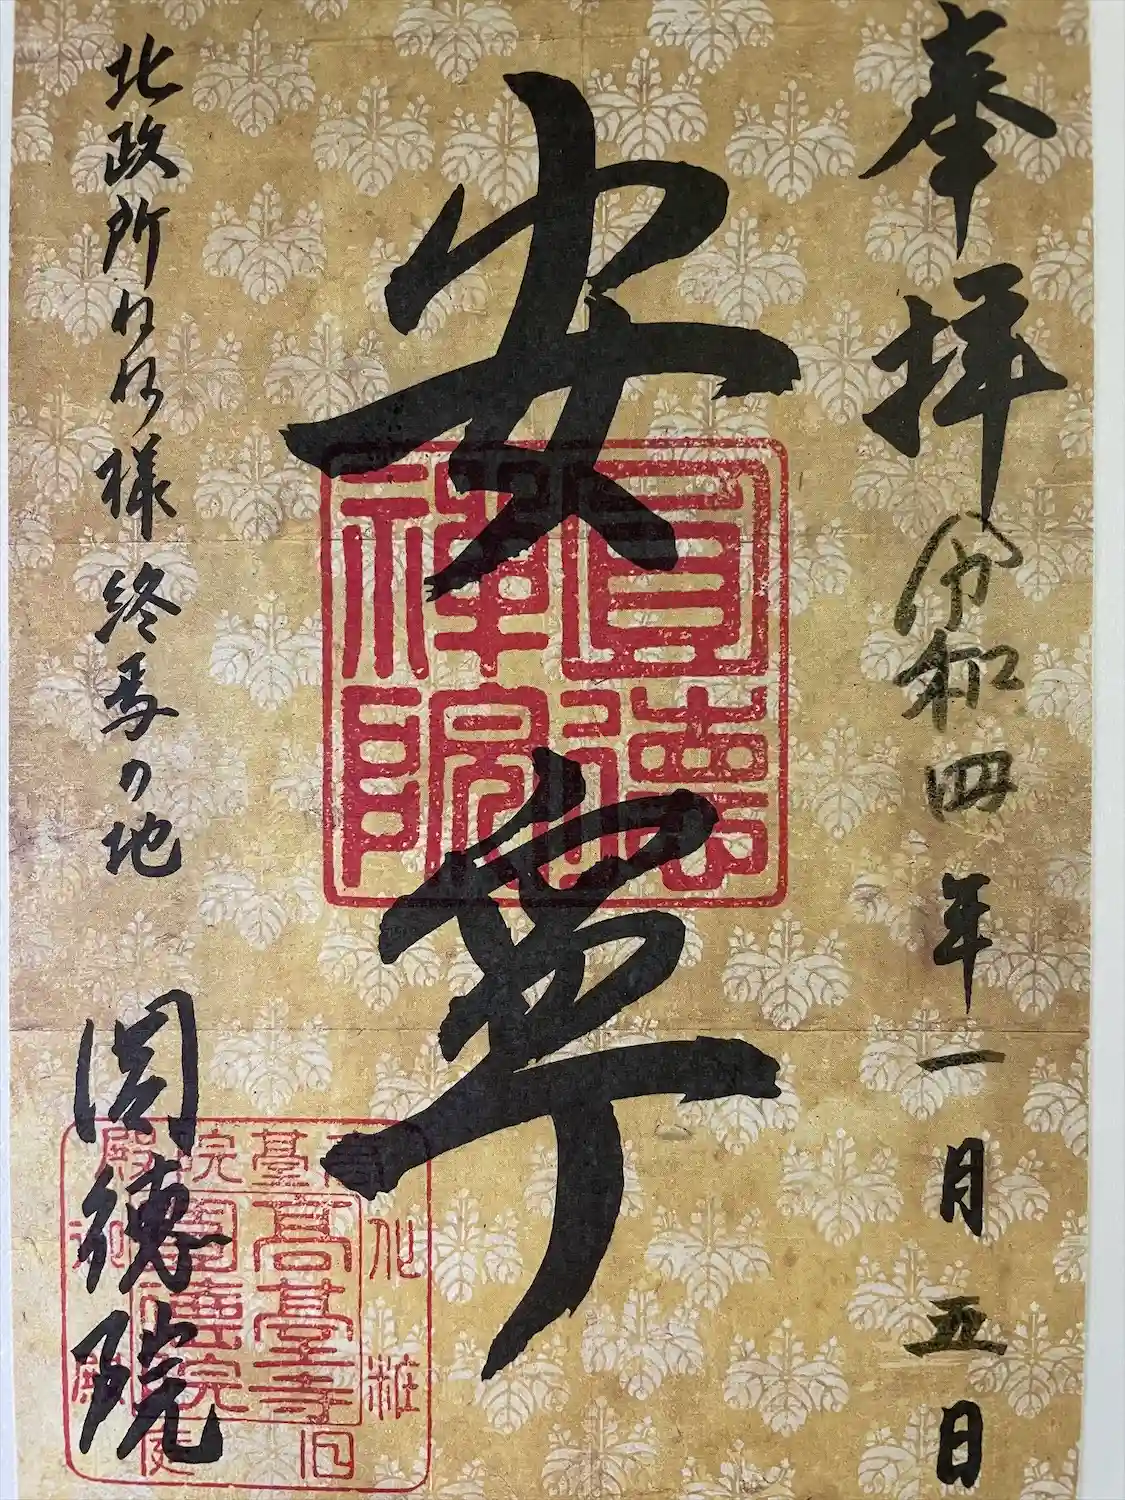 奉拝
令和四年一月五日
安寧
北政所ねね様 終焉の地
圓徳院
圓德禅院
高臺寺
圓德院